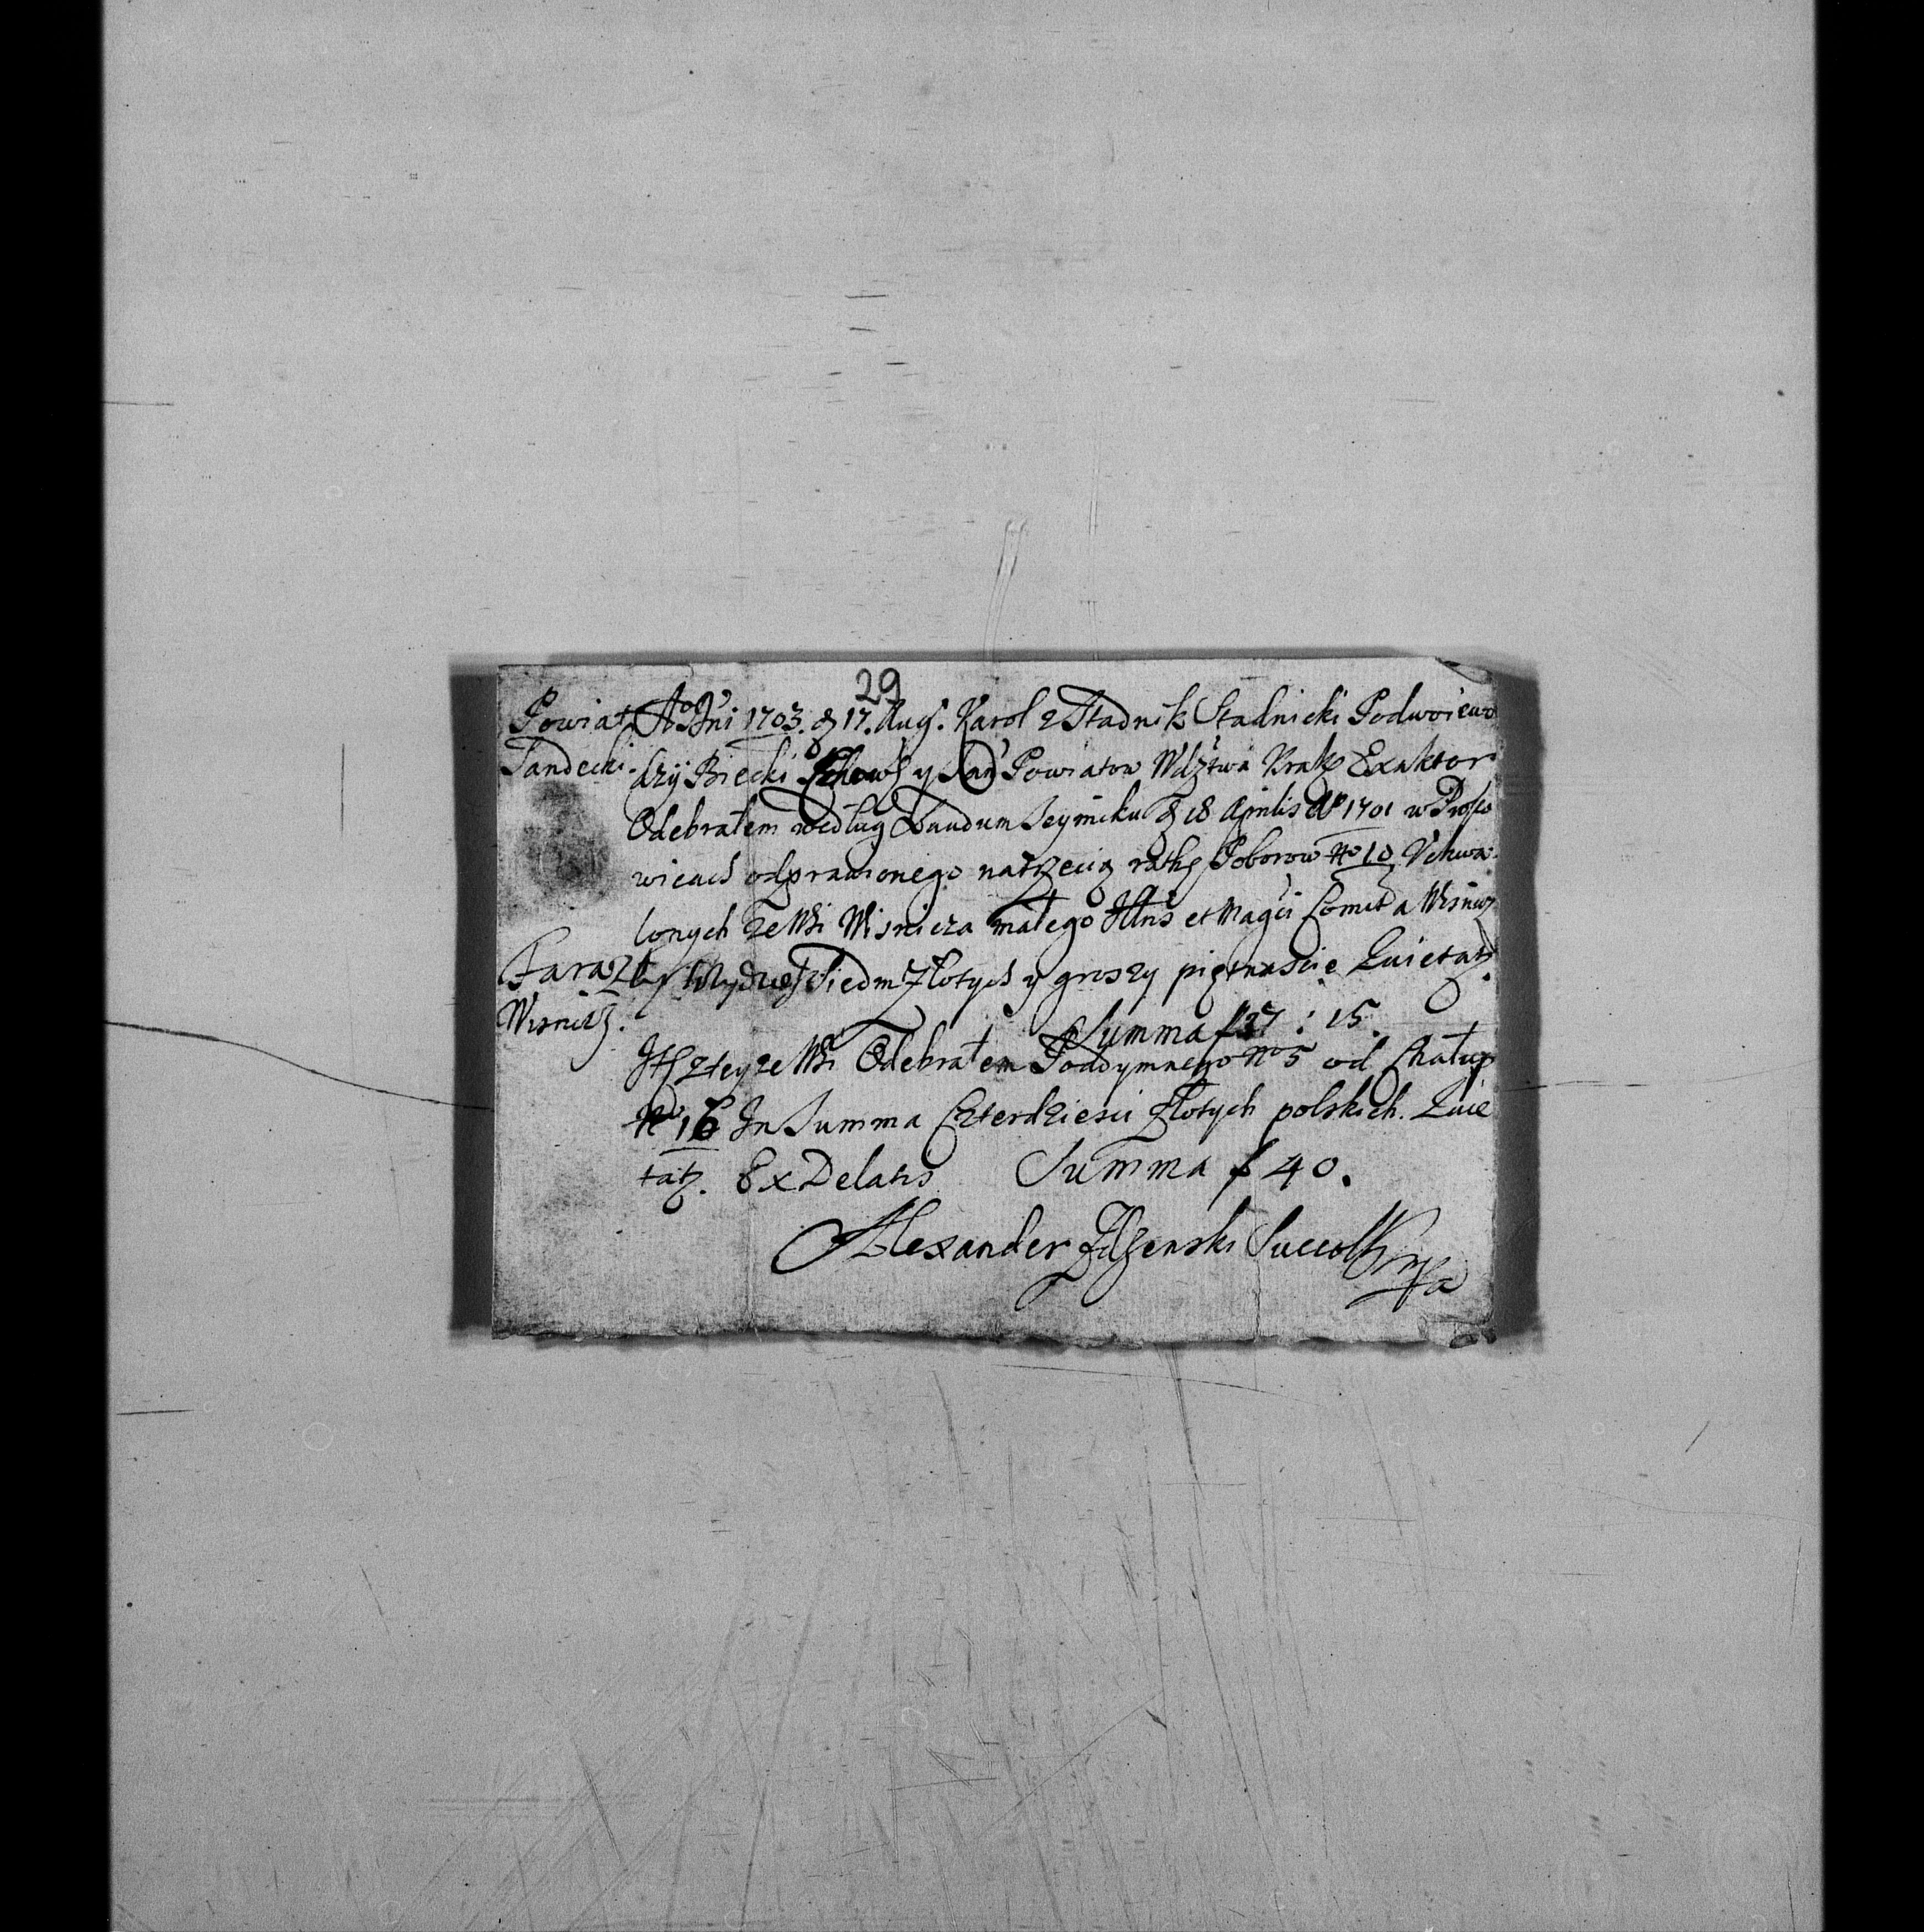 29
Powiat
Sandecki.
Ao Dni 1703. d 17. Aug. Karol z Stadnik Stadnicki Podwoiewo
dzy Biecki y Sand Powiatow Wdztwa Krak Exaktor
Odebrałem według Laudum Seymiku d 18 Aprilis Ao 1701 w Proszo
wicach odprawionego na trzecią ratę Poborow No 10 Vchwa
lonych ze Wsi Wisnicza małego Illris et Magci Comita Wisnicz
Fara
Wisnicz.
siedm Złotych y groszy piętnascie Quietatz.
Summa f 37 : 15.
Itt z teyze Wsi Odebrałem Podymnego No 5 od Chałup
No 16 In Summa Czterdziesci Złotych polskich. Quie
tatz. Ex Delatis Summa f 40.
Alexander Succoll